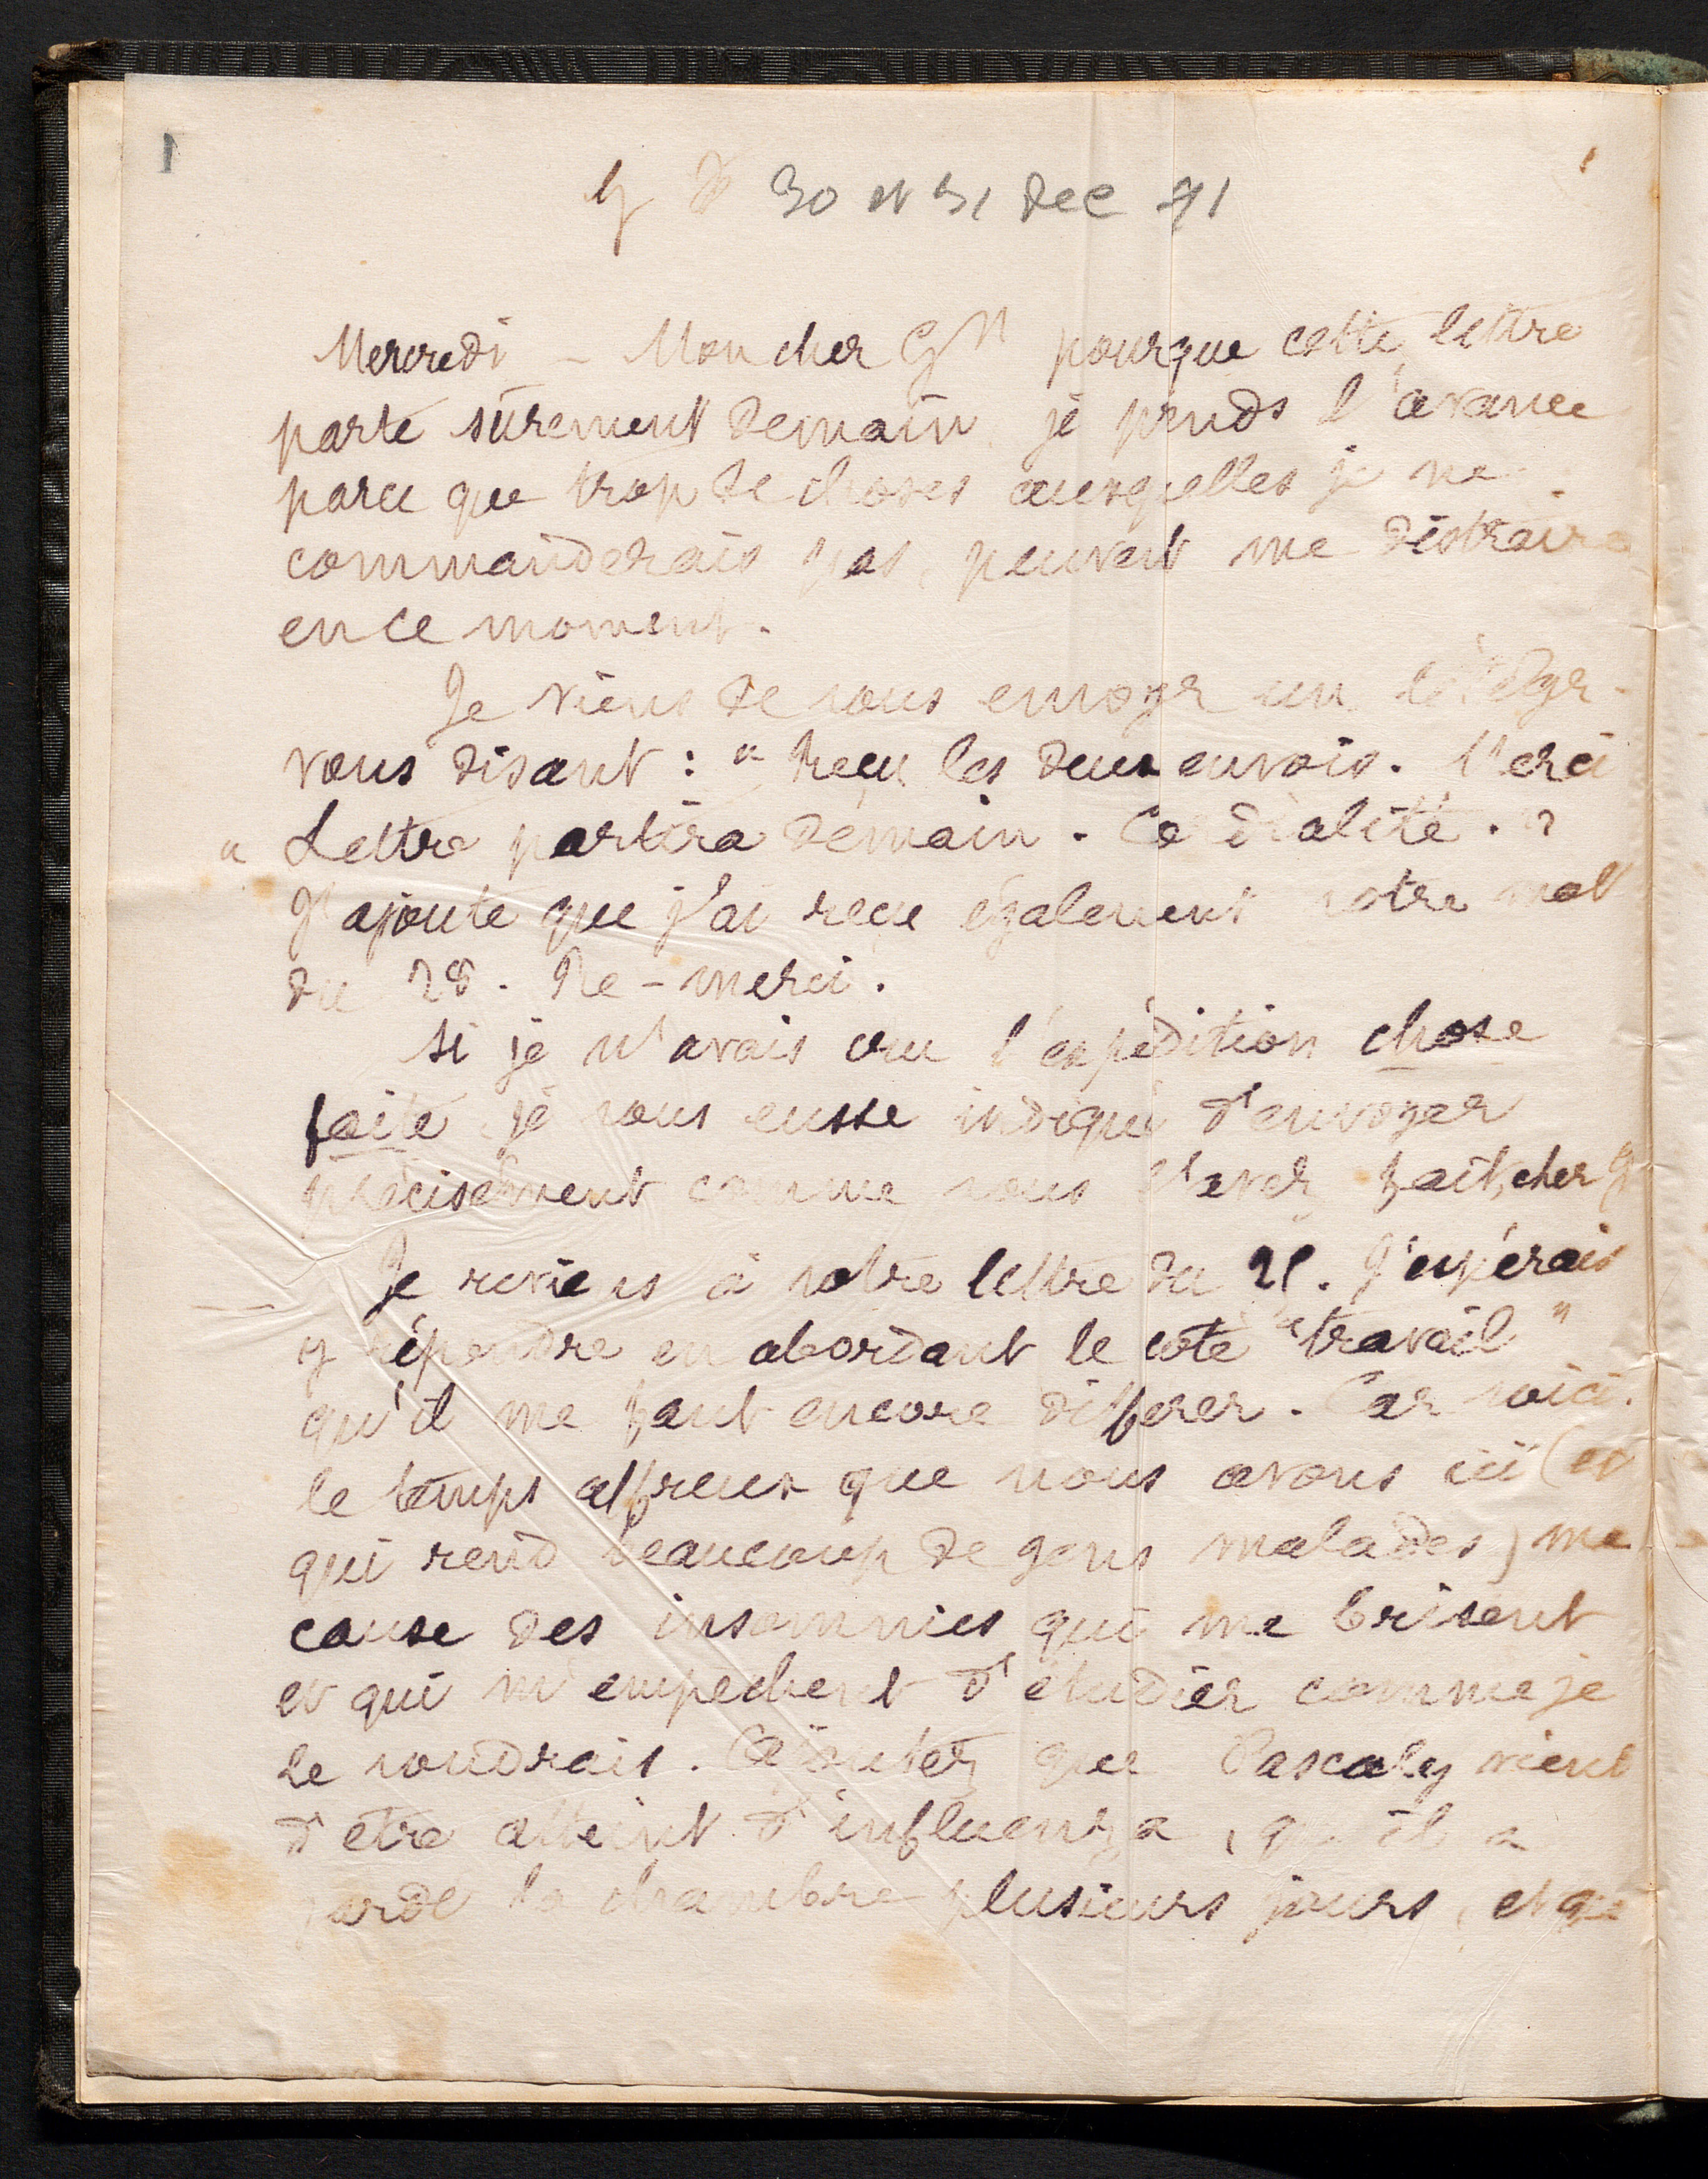 1
30 et 31 Dec 91
Mercredi - Mon cher Gn pourque cette lettre
parte sûrement demain, je prends l'avance
parce que trop de choses auxquelles je ne
commanderais pas, peuvent me distraire
en ce moment.
Je viens de vous envoyer un télégr.
vous disant : " Reçu les deux envois. Merci
" Lettre partira demain. Cordialité. "
J'ajoute que j'ai reçu également votre mot
du 28. Re-merci.
Si je n'avais cru l'expédition chose
faite, je vous eusse indiqué d'envoyer
précisément comme vous l'avez fait, cher G
Je reviens à votre lettre du 25. J'espérais
y répondre en abordant le coté "travail"
qu'il me faut encore differer. Car voici.
le temps affreux que nous avons ici (et
qui rend beaucoup de gens malades) me
cause des insomnies qui me brisent
et qui m'empechent d'étudier comme je
le voudrais. Ajoutez que Pascaly vient
d'etre atteint d'influenza, qu'il a
gardé la chambre plusieurs jours, et que